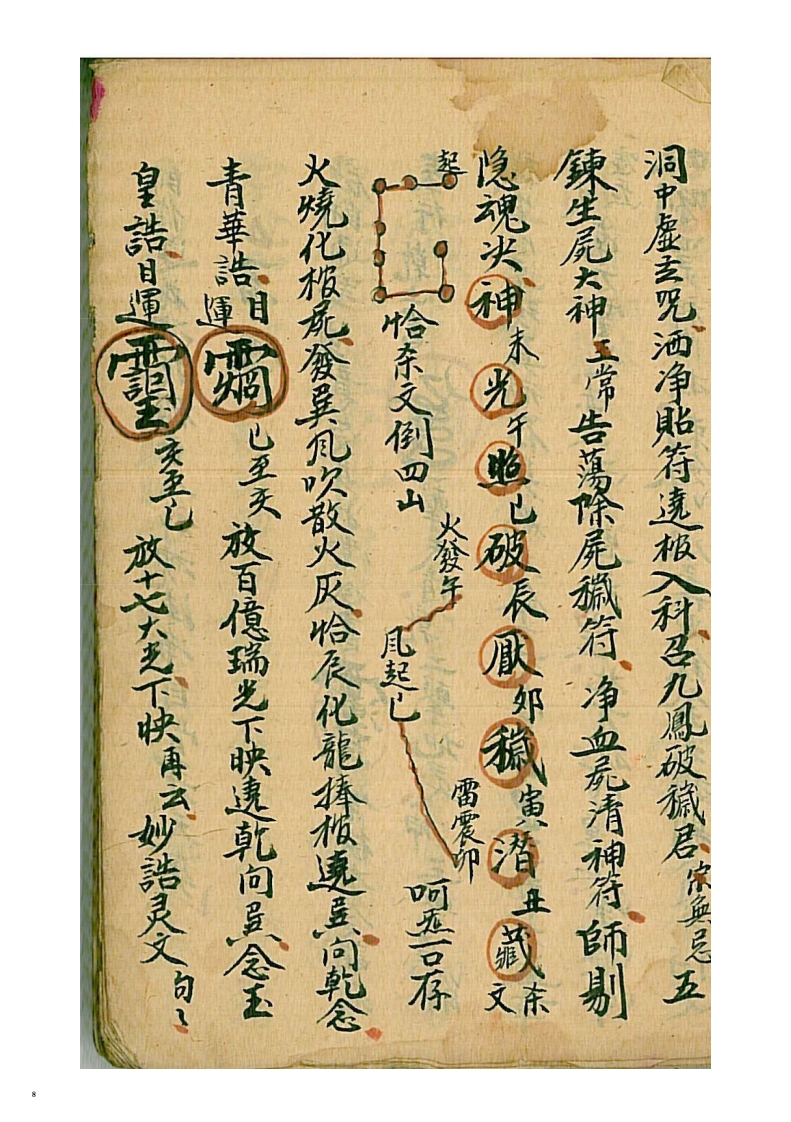 洞中虛玄咒洒净貼符遶棺入科召九鳳破穢君宋無忌五
鍊生屍大神王常告蕩除屍穢符净血屍清神符師剔
隐魂决神未光午照巳破辰厭卯穢寅潛丑藏
文
起
恰 文倒四山
火發午
風起巳
雷震卯
呵 存
火燒化棺屍發巽风吹散火灰恰辰化龍捧棺遶巽向乾念
青華誥目運 巳至亥放百億瑞光下映遶乾向巽念玉
皇誥目運 亥至巳放十七大光下映再云妙誥灵文句々
8